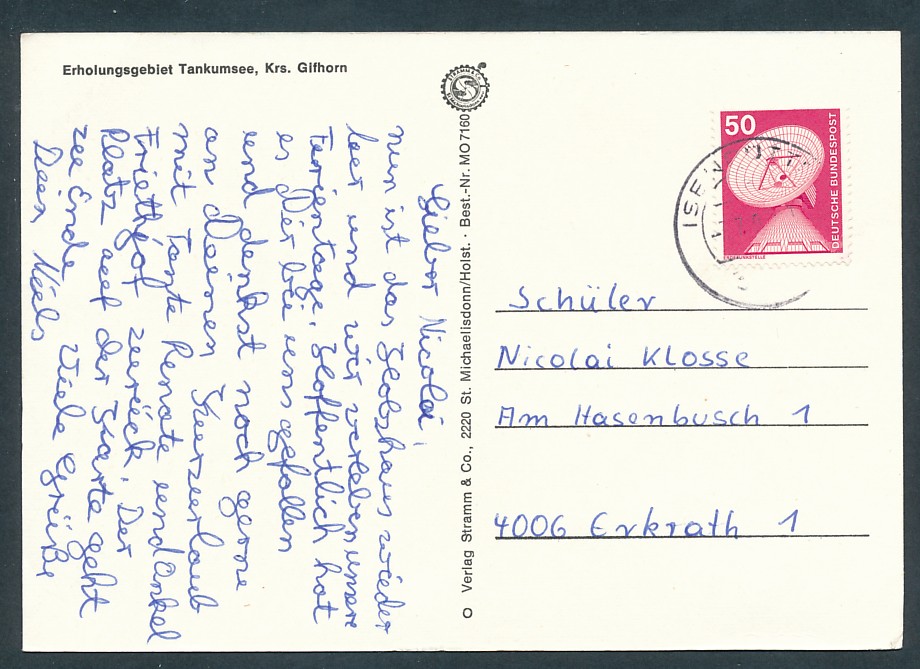 Erholungsgebiet Tankumsee, Krs. Gifhorn
STRAMM & CO.
50
DEUTSCHE BUNDESPOST
ERDFUNKSTELLE
ISEN
Lieber Nicolai,
nun ist das Holzhaus wieder
leer und wir verleben unsere
Ferientage. Hoffentlich hat
es Dir bei uns gefallen
und denkst noch gerne
an Deinen Kurzurlaub
mit Tante Renate und Onkel
Friethjof zurück. Der
Platz auf der Karte geht
zu Ende. Viele Grüße
Dein Niels
O Verlag Stramm & Co., 2220 St. Michaelisdonn/Holst. · Best.-Nr. MO 7160
Schüler
Nicolai Klosse
Am Hasenbusch 1
4006 Erkrath 1